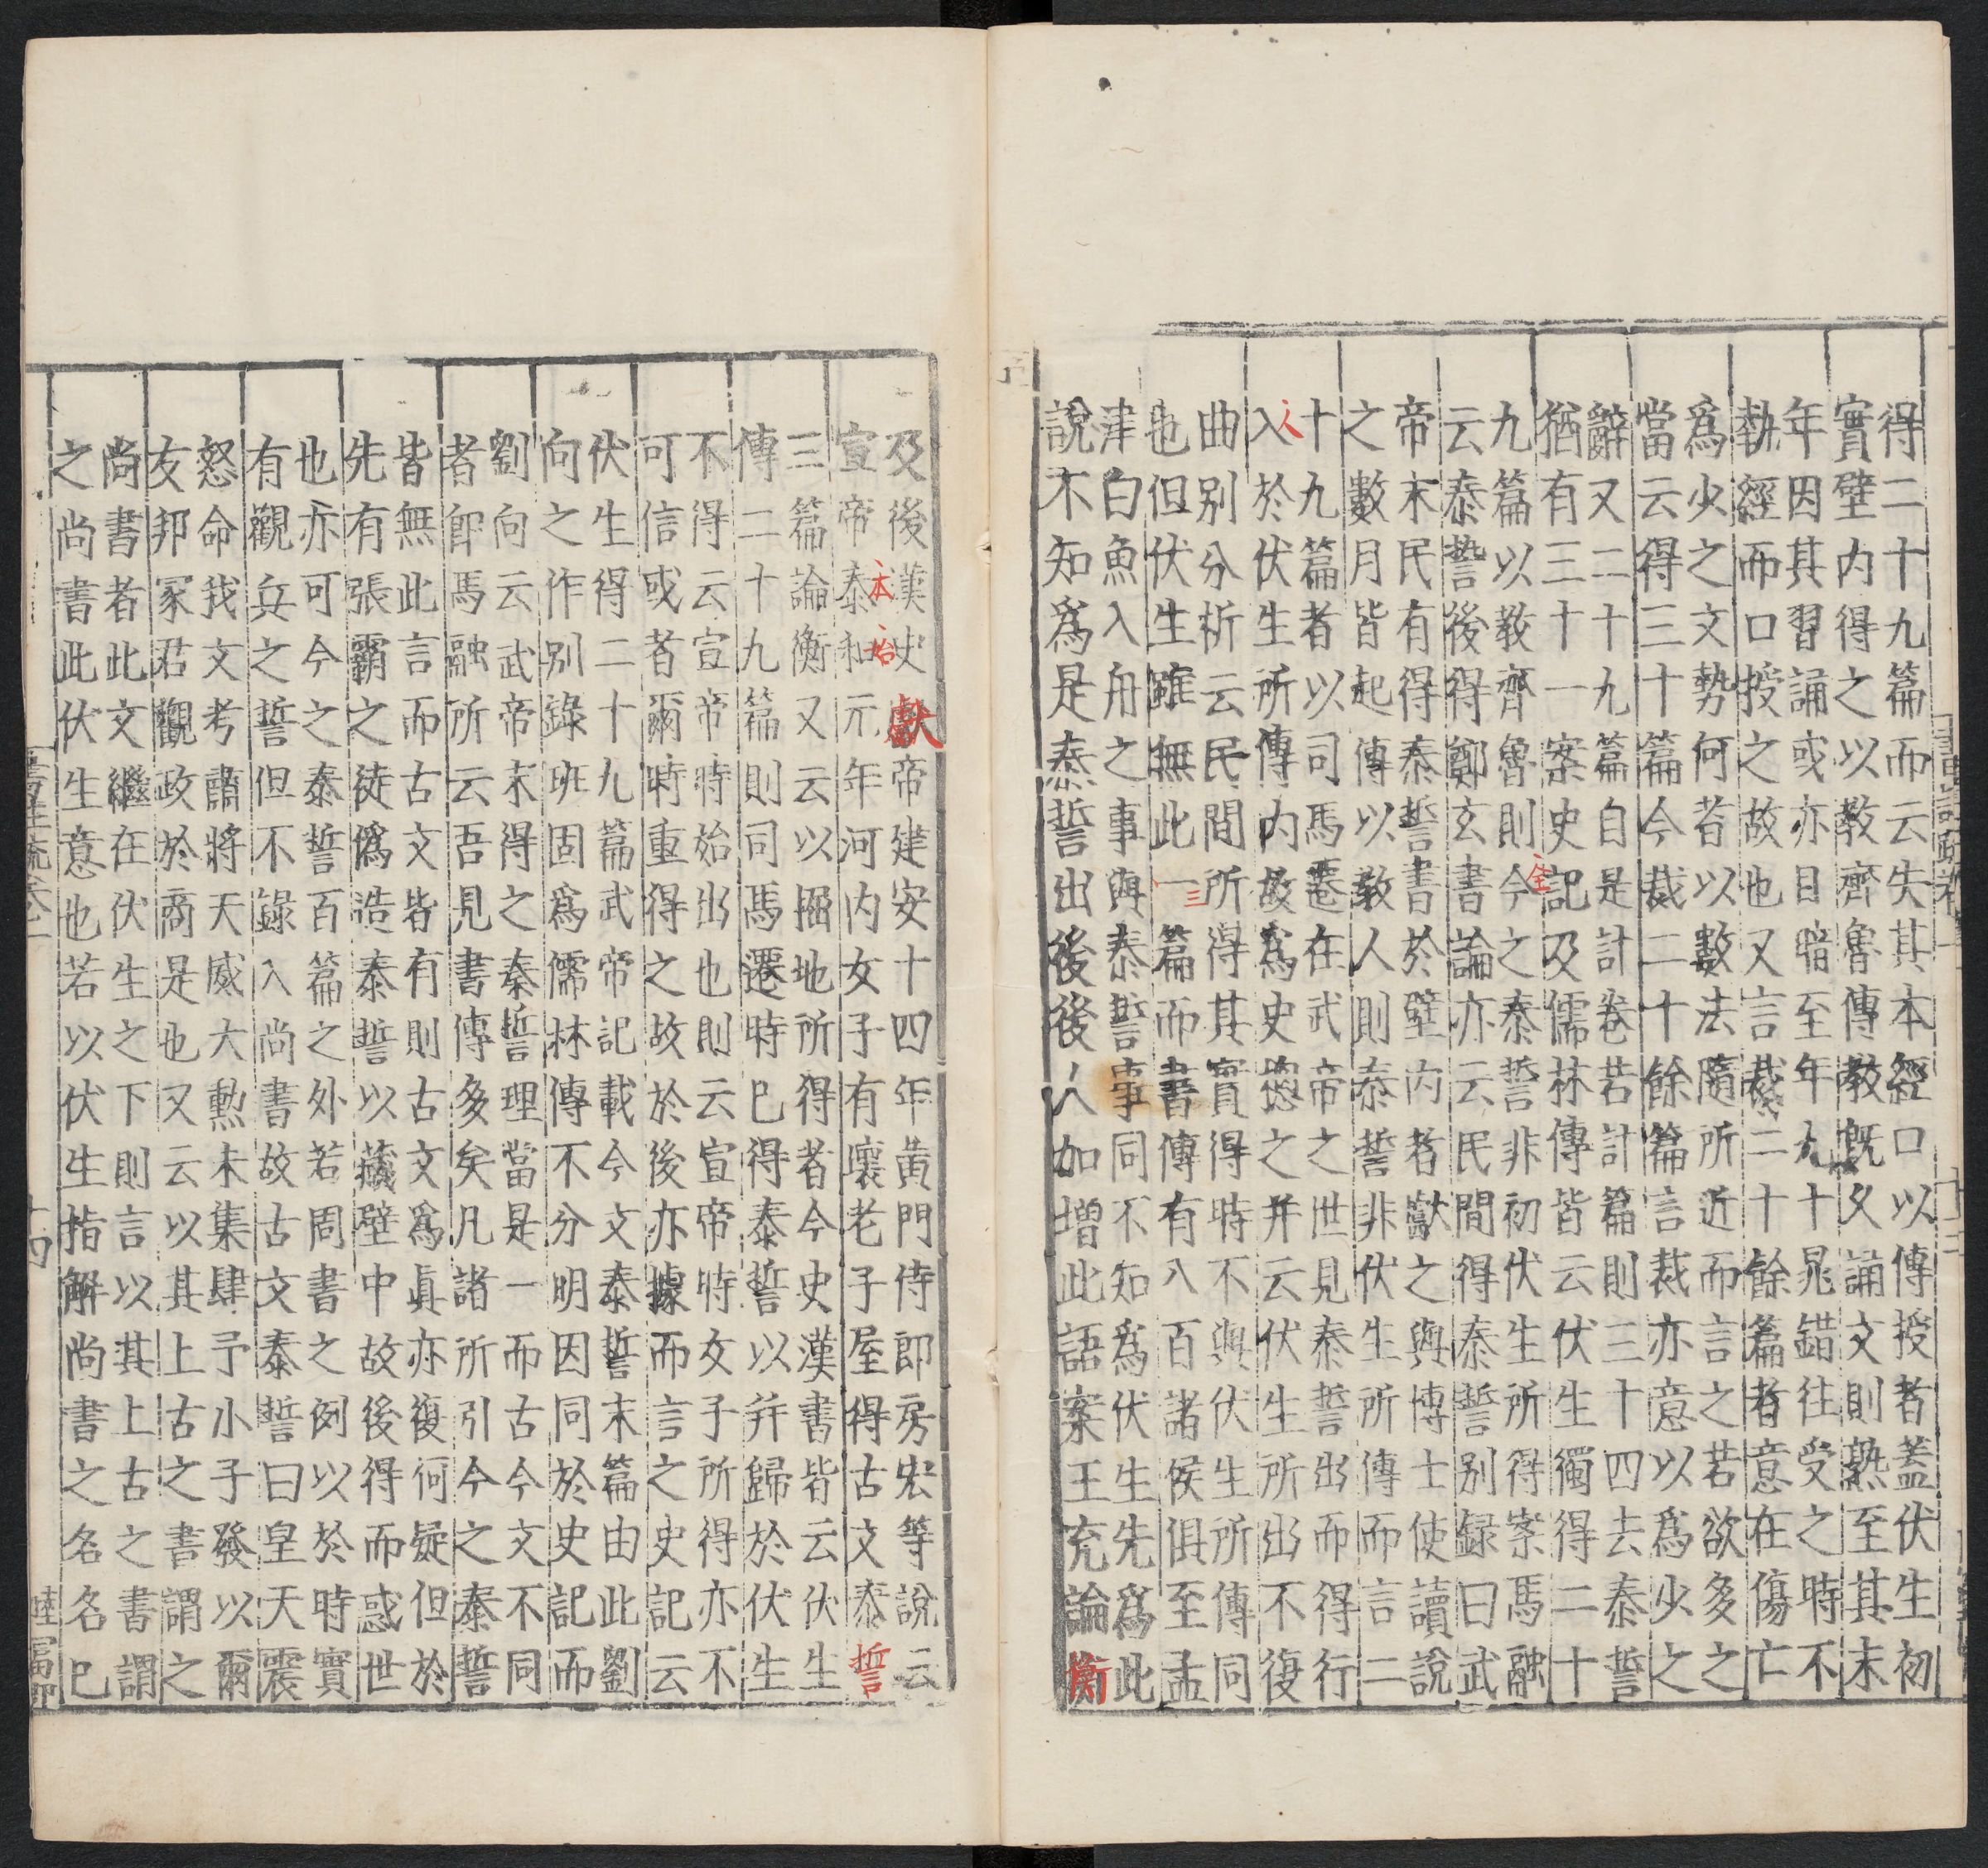 得二十九篇而云失其本經口以傳授者蓋伏生初
實壁内得之以教齊魯傳教既久誦文則熟至其末
年因其習誦或亦目暗至年九十晁錯往受之時不
執經而口授之故也又言裁二十餘篇者意在傷亡
爲少之文勢何若以數法隨所近而言之若欲多之
當云得三十篇今裁二十餘篇言裁亦意以爲少之
辭又二十九篇自是計卷若計篇則三十四去泰誓
猶有三十一案史記及儒林傳皆云伏生獨得二十
九篇以教齊魯則今之泰誓非初伏生所得案馬融
全
云泰誓後得鄭玄書論亦云民間得泰誓别録曰武
帝末民有得泰誓書於壁内者獻之與博士使讀說
之數月皆起傳以教人則泰誓非伏生所傳而言二
十九篇者以司馬遷在武帝之世見泰誓出而得行
入於伏生所傳内故爲史總之并云伏生所出不復
曲别分析云民間所得其實得時不與伏生所傳同
也但伏生雖無此一篇而書傳有八百諸侯俱至孟
三
津白魚入舟之事與泰誓事同不知爲伏生先爲此
說不知爲是泰誓出後後人加增此語案王充論衡
及後漢史獻帝建安十四年黄門侍郎房宏等說云
宣帝泰和元年河内女子有壞老子屋得古文泰誓
本始
三篇論衡又云以掘地所得者今史漢書皆云伏生
傳二十九篇則司馬遷時已得泰誓以并歸於伏生
不得云宣帝時始出也則云宣帝時女子所得亦不
可信或者爾時重得之故於後亦據而言之史記云
伏生得二十九篇武帝記載今文泰誓末篇由此劉
向之作别錄班固爲儒林傳不分明因同於史記而
劉向云武帝末得之泰誓理當是一而古今文不同
者即馬融所云吾見書傳多矣凡諸所引今之泰誓
皆無此言而古文皆有則古文爲真亦復何疑但於
先有張霸之徒僞造泰誓以藏壁中故後得而惑世
也亦可今之泰誓百篇之外若周書之例以於時實
有觀兵之誓但不錄入尚書故古文泰誓曰皇天震
怒命我文考肅將天威大勲未集肆予小子發以爾
友邦冢君觀政於商是也又云以其上古之書謂之
尚書者此文繼在伏生之下則言以其上古之書謂
之尚書此伏生意也若以伏生指解尚書之名名已